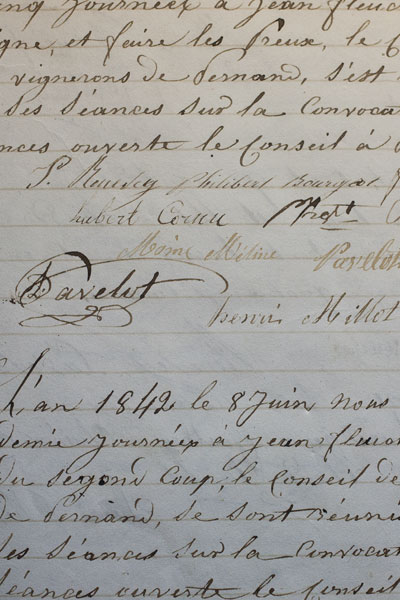 cinq Journéex à Jean
igne, et faire les Preux, le C
vignerons de Pernand, s'est
des séances sur la Convoca
nces ouverte le Conseil à
Philibert
hubert Cornu
Moine Méline Pavelot
Pavelot
henri Millot
L'an 1842 le 8 Juin nous
demie Journéex à Jean
du segond Coup, le Conseil de
de Pernand, se sont réuni
des séances sur la Convocat
séances ouverte le Conseil